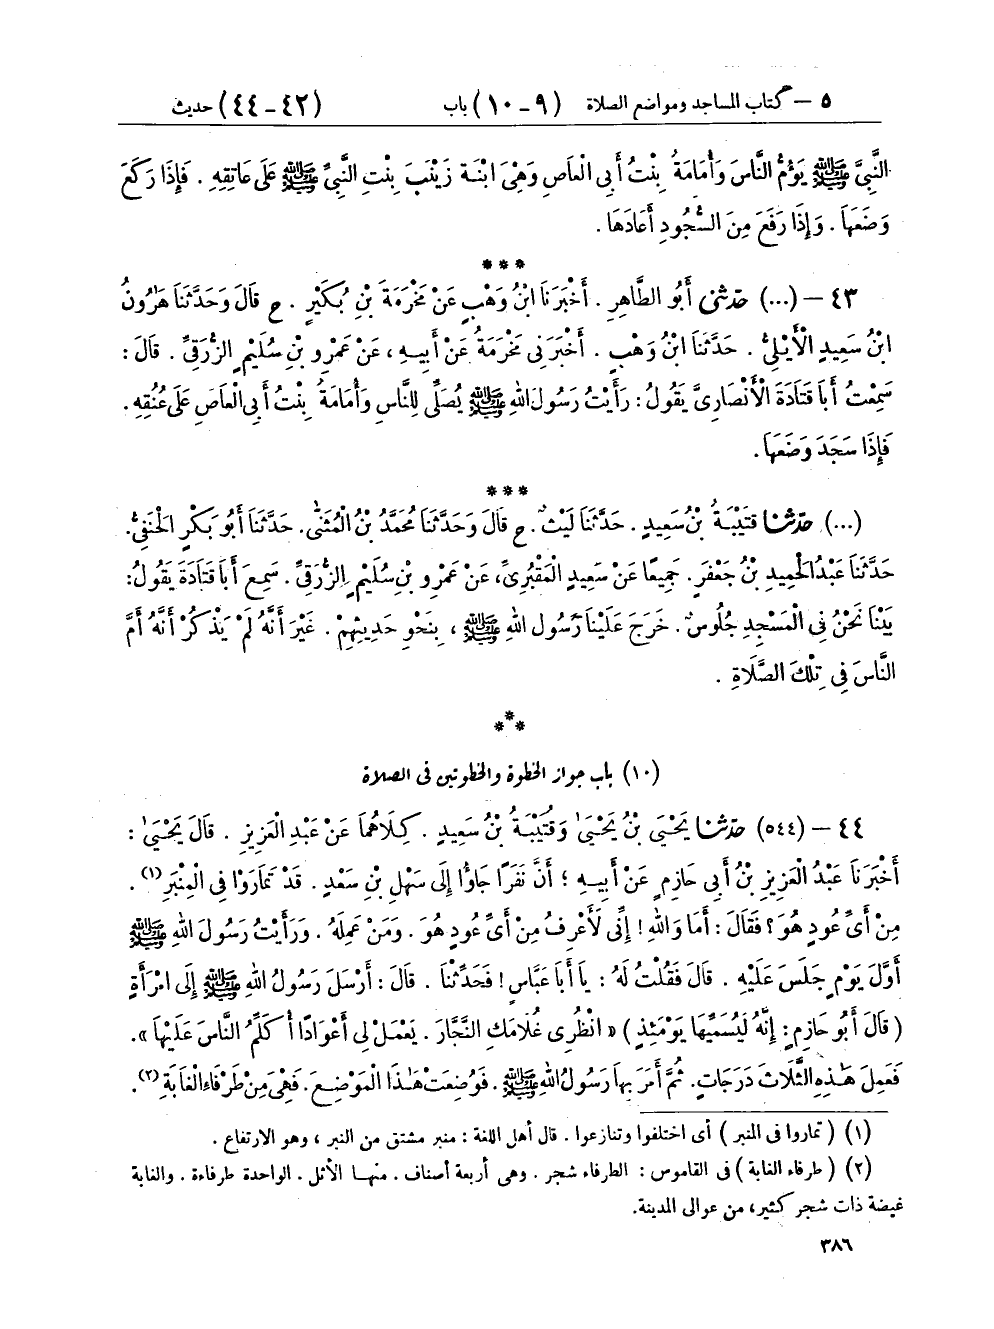 ٥ – كتاب المساجد ومواضع الصلاة (٩ – ١٠) باب (٤٢ – ٤٤) حديث
النَّبِيَّ ﷺ يَؤُمُّ النَّاسَ وَأُمَامَةُ بِنْتُ أَبِي الْعَاصِ وَهِيَ ابْنَةُ زَيْنَبَ بِنْتِ النَّبِيِّ ﷺ عَلَى عَاتِقِهِ . فَإِذَا رَكَعَ
وَضَعَهَا . وَإِذَا رَفَعَ مِنَ السُّجُودِ أَعَادَهَا .
***
٤٣ – (...) حَدَّثَنِي أَبُو الطَّاهِرِ . أَخْبَرَنَا ابْنُ وَهْبٍ عَنْ مَخْرَمَةَ بْنِ بُكَيْرٍ . ح قَالَ وَحَدَّثَنَا هَارُونُ
ابْنُ سَعِيدٍ الْأَيْلِيُّ . حَدَّثَنَا ابْنُ وَهْبٍ . أَخْبَرَنِي مَخْرَمَةُ عَنْ أَبِيهِ ، عَنْ عَمْرِو بْنِ سُلَيْمٍ الزُّرَقِيِّ . قَالَ :
سَمِعْتُ أَبَا قَتَادَةَ الْأَنْصَارِيَّ يَقُولُ : رَأَيْتُ رَسُولَ اللهِ ﷺ يُصَلِّي لِلنَّاسِ وَأُمَامَةُ بِنْتُ أَبِي الْعَاصِ عَلَى عُنُقِهِ .
فَإِذَا سَجَدَ وَضَعَهَا .
***
(...) حَدَّثَنَا قُتَيْبَةُ بْنُ سَعِيدٍ . حَدَّثَنَا لَيْثٌ . ح قَالَ وَحَدَّثَنَا مُحَمَّدُ بْنُ الْمُثَنَّى . حَدَّثَنَا أَبُو بَكْرٍ الْحَنَفِيُّ .
حَدَّثَنَا عَبْدُ الْحَمِيدِ بْنُ جَعْفَرٍ . جَمِيعًا عَنْ سَعِيدٍ الْمَقْبُرِيِّ ، عَنْ عَمْرِو بْنِ سُلَيْمٍ الزُّرَقِيِّ . سَمِعَ أَبَا قَتَادَةَ يَقُولُ :
بَيْنَا نَحْنُ فِي الْمَسْجِدِ جُلُوسٌ . خَرَجَ عَلَيْنَا رَسُولُ اللهِ ﷺ ، بِنَحْوِ حَدِيثِهِمْ . غَيْرَ أَنَّهُ لَمْ يَذْكُرْ أَنَّهُ أَمَّ
النَّاسَ فِي تِلْكَ الصَّلَاةِ .
***
(١٠) باب جواز الخطوة والخطوتين فى الصلاة
٤٤ – (٥٤٤) حَدَّثَنَا يَحْيَى بْنُ يَحْيَى وَقُتَيْبَةُ بْنُ سَعِيدٍ . كِلَاهُمَا عَنْ عَبْدِ الْعَزِيزِ . قَالَ يَحْيَى :
أَخْبَرَنَا عَبْدُ الْعَزِيزِ بْنُ أَبِي حَازِمٍ عَنْ أَبِيهِ ؛ أَنَّ نَفَرًا جَاؤُا إِلَى سَهْلِ بْنِ سَعْدٍ . قَدْ تَمَارَوْا فِي الْمِنْبَرِ (١) .
مِنْ أَيِّ عُودٍ هُوَ ؟ فَقَالَ : أَمَا وَاللهِ ! إِنِّي لَأَعْرِفُ مِنْ أَيِّ عُودٍ هُوَ . وَمَنْ عَمِلَهُ . وَرَأَيْتُ رَسُولَ اللهِ ﷺ
أَوَّلَ يَوْمٍ جَلَسَ عَلَيْهِ . قَالَ فَقُلْتُ لَهُ : يَا أَبَا عَبَّاسٍ ! فَحَدِّثْنَا . قَالَ : أَرْسَلَ رَسُولُ اللهِ ﷺ إِلَى امْرَأَةٍ
( قَالَ أَبُو حَازِمٍ : إِنَّهُ لَيُسَمِّيهَا يَوْمَئِذٍ ) « انْظُرِي غُلَامَكِ النَّجَّارَ . يَعْمَلْ لِي أَعْوَادًا أُكَلِّمُ النَّاسَ عَلَيْهَا » .
فَعَمِلَ هَذِهِ الثَّلَاثَ دَرَجَاتٍ . ثُمَّ أَمَرَ بِهَا رَسُولُ اللهِ ﷺ . فَوُضِعَتْ هَذَا الْمَوْضِعَ . فَهْيَ مِنْ طَرْفَاءِ الْغَابَةِ (٢) .
(١) ( تماروا فى المنبر ) أى اختلفوا وتنازعوا . قال أهل اللغة : منبر مشتق من النبر ، وهو الارتفاع .
(٢) ( طرفاء الغابة ) فى القاموس : الطرفاء شجر . وهى أربعة أصناف . منها الأثل . الواحدة طرفاءة . والغابة
غيضة ذات شجر كثير، من عوالى المدينة.
٣٨٦